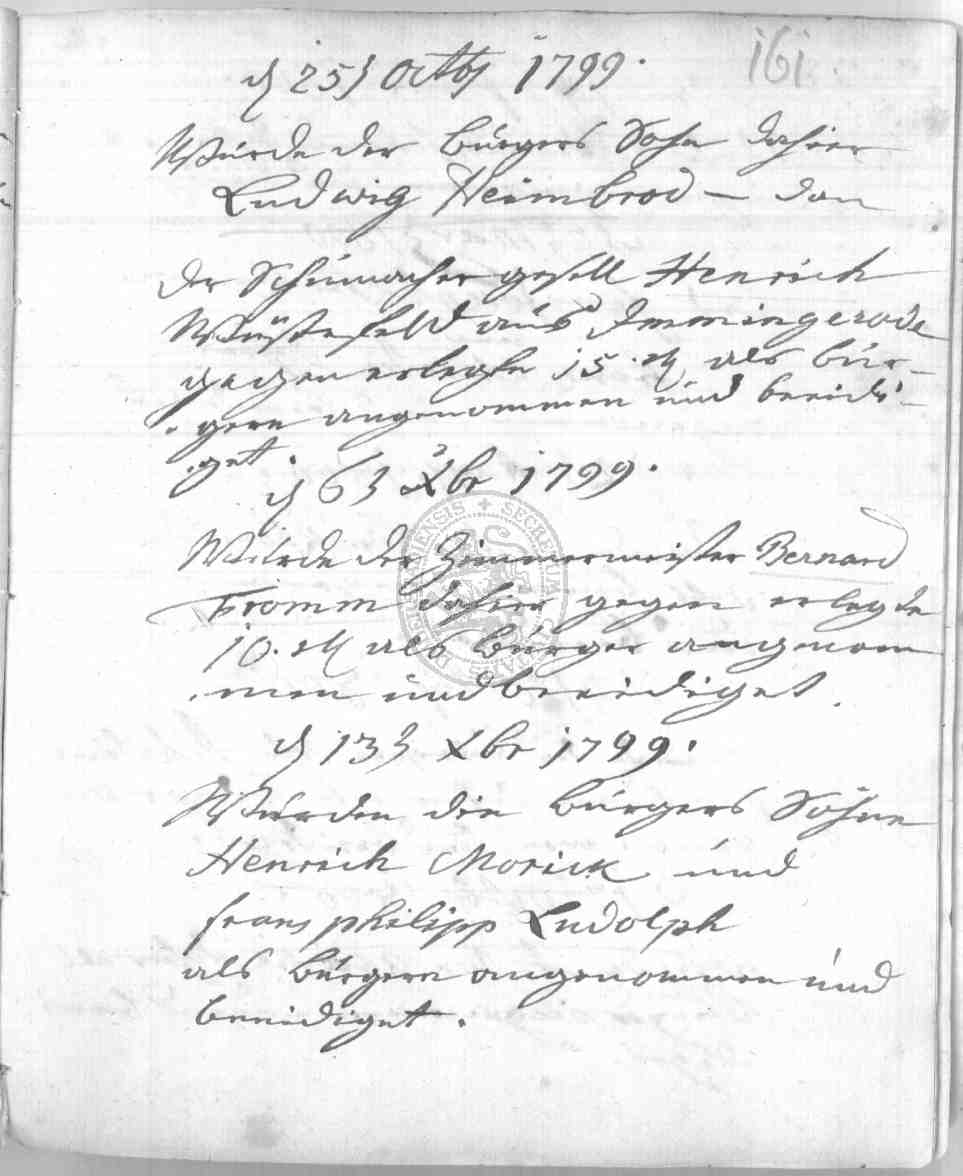 161
d 25t Octbr 1799.
Wurde der bürgers Sohn dahier
Ludwig Heimbrod – dan
der Schumacher gesell Henrich
Wüstefeld aus Immingerode
gegen erlegte 15 als bür-
gern angenommen und beeidi-
get.
d 6t Xbr 1799.
Wurde der Zimmermeister Bernard
Fromm dahier gegen erlegte
10. als bürger angenom
men und beeidiget.
d 13t Xbr 1799.
Wurden die bürgers Söhne
Henrich Morick und
frans philipp Ludolph
als bürgern angenommen und
beeidiget.
SECRETUM